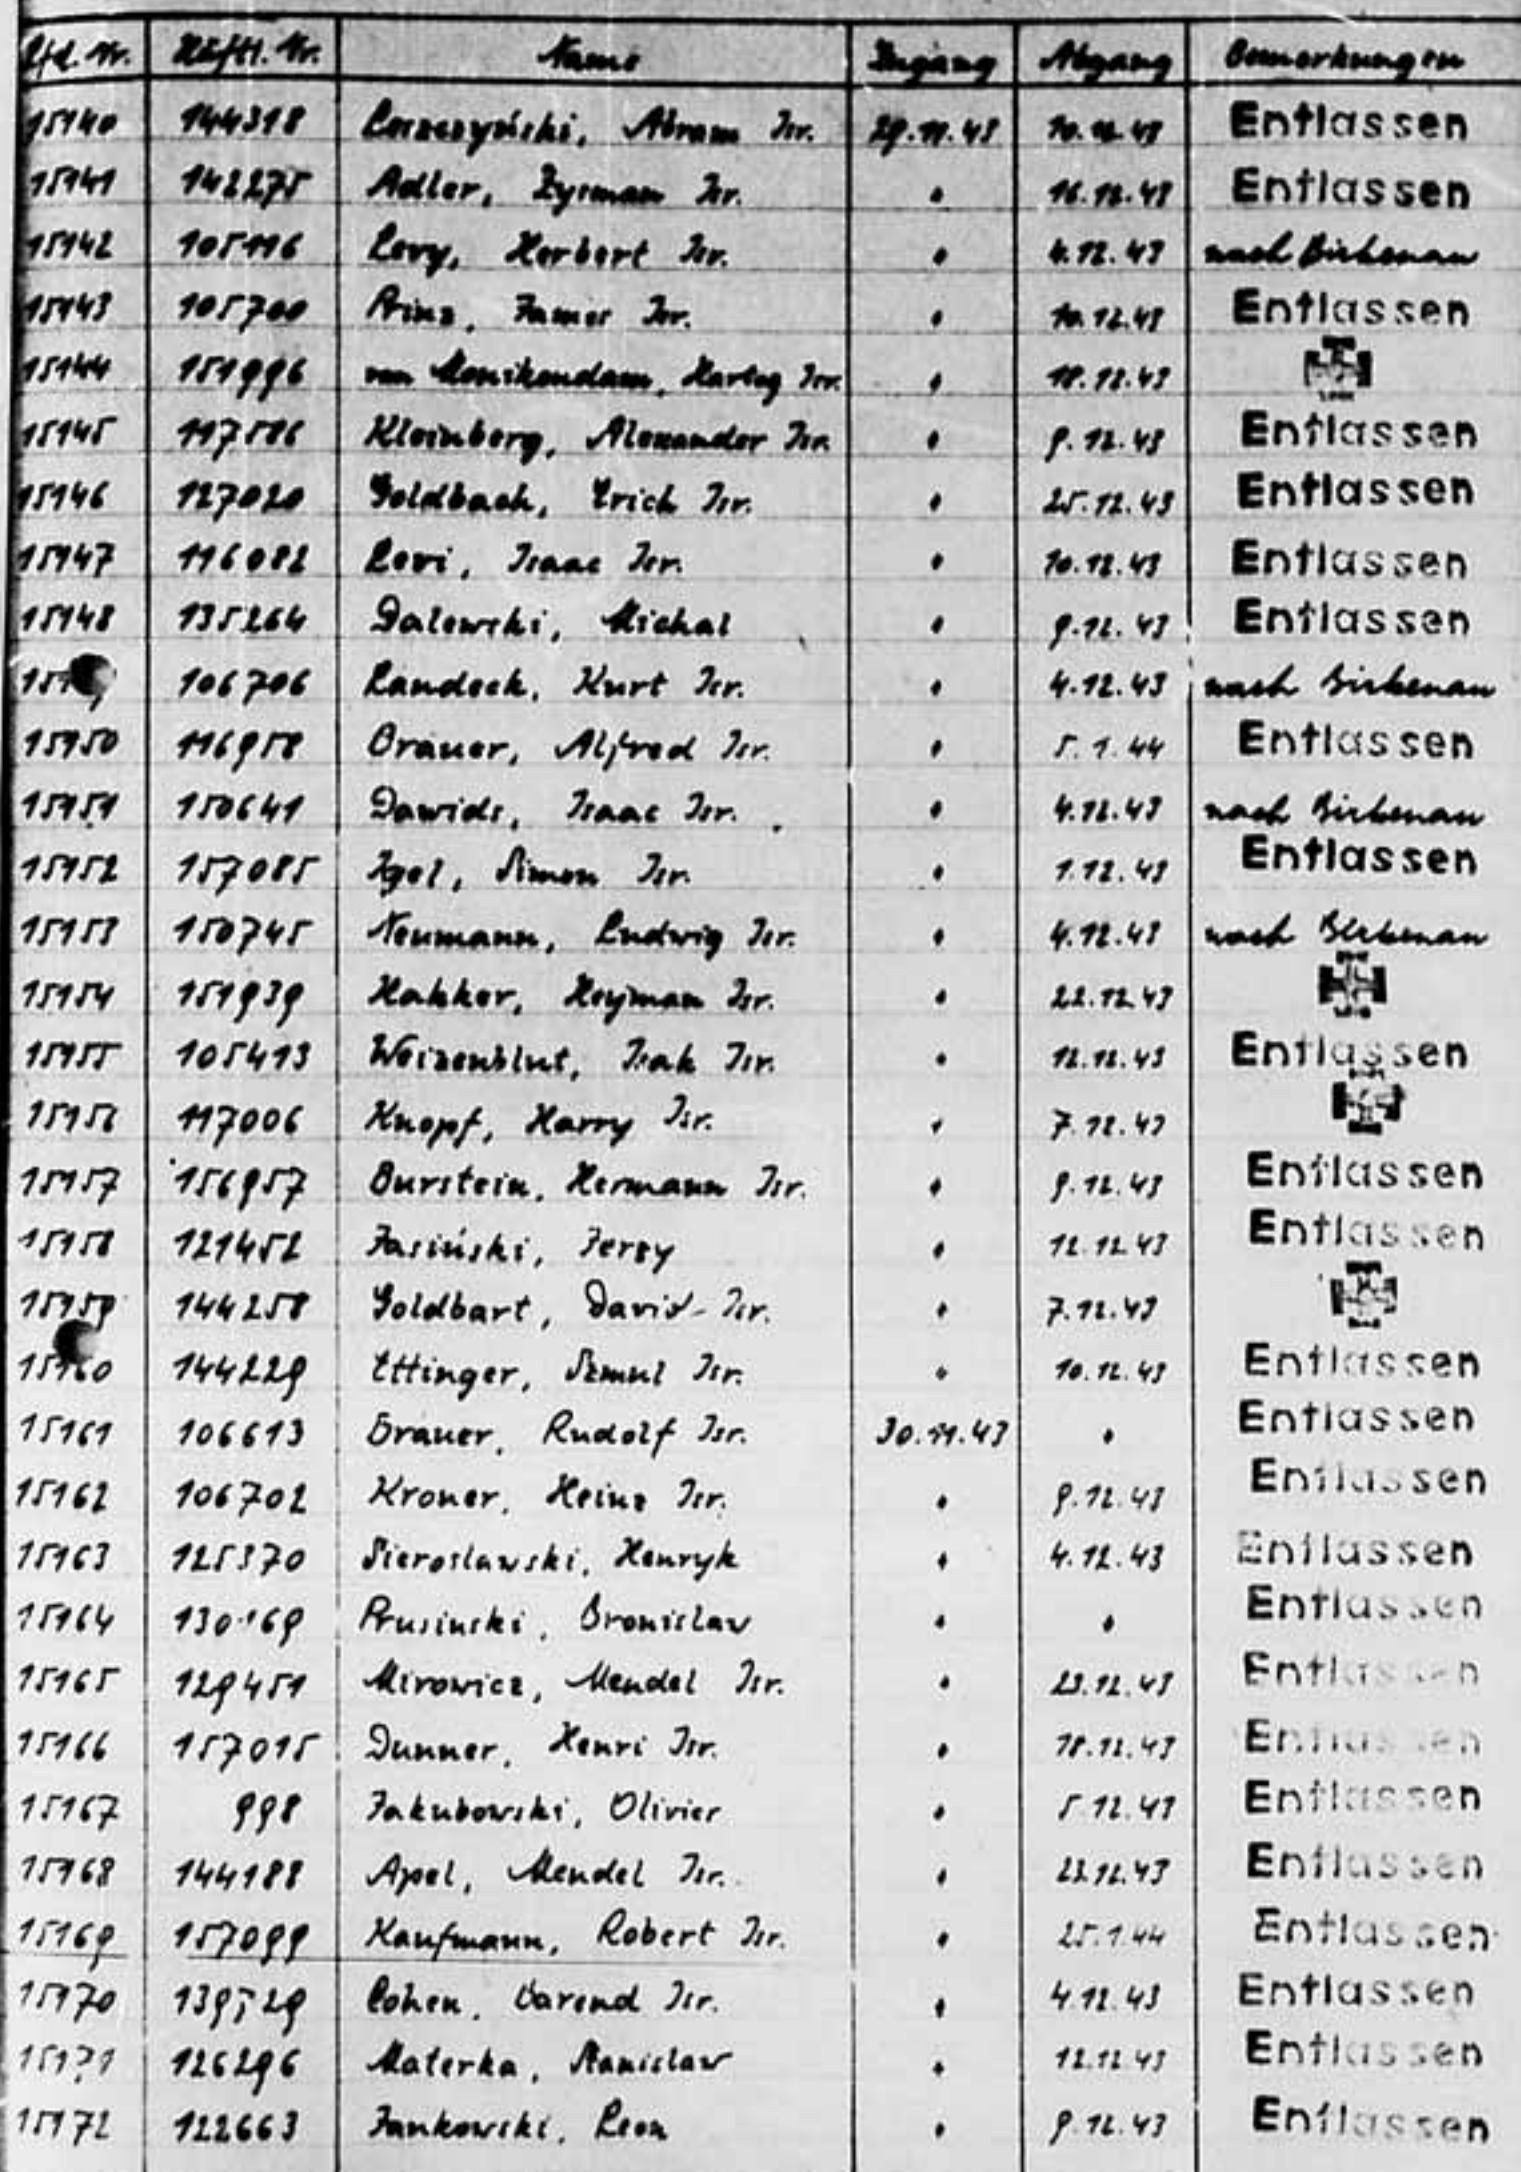 Lfd. Nr. Häftl. Nr. Name Zugang Abgang Bemerkungen
15140 144318 Abram Isr. 29.11.43 10.12.43 Entlassen
15141 142275 Adler, Zysman Isr. " 16.12.43 Entlassen
15142 105116 Levy, Herbert Isr. " 4.12.43 nach Birkenau
15143 105700 Prinz, James Isr. " 10.12.43 Entlassen
15144 151996 van Monikendam, Hartog Isr. " 18.12.43
15145 117586 Kleinberg, Alexander Isr. " 9.12.43 Entlassen
15146 127020 Goldbach, Erich Isr. " 25.12.43 Entlassen
15147 116082 Levi, Isaac Isr. " 10.12.43 Entlassen
15148 135264 Dalewski, Michal " 9.12.43 Entlassen
106706 Landeck, Kurt Isr. " 4.12.43 nach Birkenau
15150 116958 Brauer, Alfred Isr. " 5.1.44 Entlassen
15151 150641 Dawids, Isaac Isr. " 4.12.43 nach Birkenau
15152 157085 Igel, Simon Isr. " 1.12.43 Entlassen
15153 150745 Neumann, Ludwig Isr. " 4.12.43 nach Birkenau
15154 151939 Hakker, Heyman Isr. " 22.12.43
15155 105413 Weizenblut, Isak Isr. " 12.12.43 Entlassen
15156 117006 Knopf, Harry Isr. " 7.12.43
15157 156957 Burstein, Hermann Isr. " 9.12.43 Entlassen
15158 121452 Jasiński, Jerzy " 12.12.43 Entlassen
15159 144258 Goldbart, David Isr. " 7.12.43
15160 144229 Ettinger, Szmul Isr. " 10.12.43 Entlassen
15161 106613 Brauer, Rudolf Isr. 30.11.43 " Entlassen
15162 106702 Kroner, Heinz Isr. " 9.12.43 Entlassen
15163 125370 Sieroslawski, Henryk " 4.12.43 Entlassen
15164 130169 Prusinski, Bronislaw " " Entlassen
15165 129451 Mirowicz, Mendel Isr. " 23.12.43 Entlassen
15166 157015 Dunner, Henri Isr. " 18.12.43 Entlassen
15167 998 Jakubowski, Olivier " 5.12.43 Entlassen
15168 144188 Apel, Mendel Isr. " 23.12.43 Entlassen
15169 157099 Kaufmann, Robert Isr. " 25.1.44 Entlassen
15170 139529 Cohen, Barend Isr. " 4.12.43 Entlassen
15171 126296 Materka, Stanislaw " 12.12.43 Entlassen
15172 122663 Jankowski, Leon " 9.12.43 Entlassen